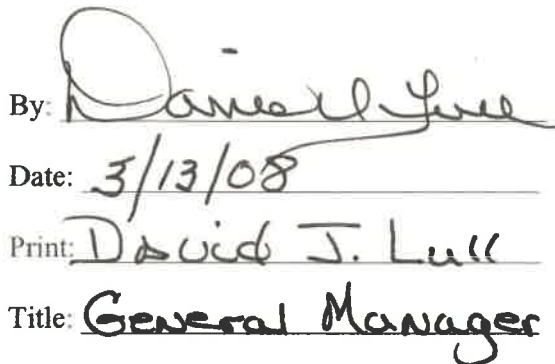 By:
Date: 3/13/08
Print: David J. Lull
Title: General Manager